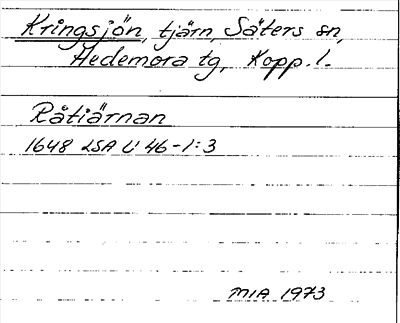 Kringsjön, tjärn, Säters sn,
Hedemora tg, Kopp. l.
Råtiärnan
1648 LSA U 46-1:3
MIA 1973